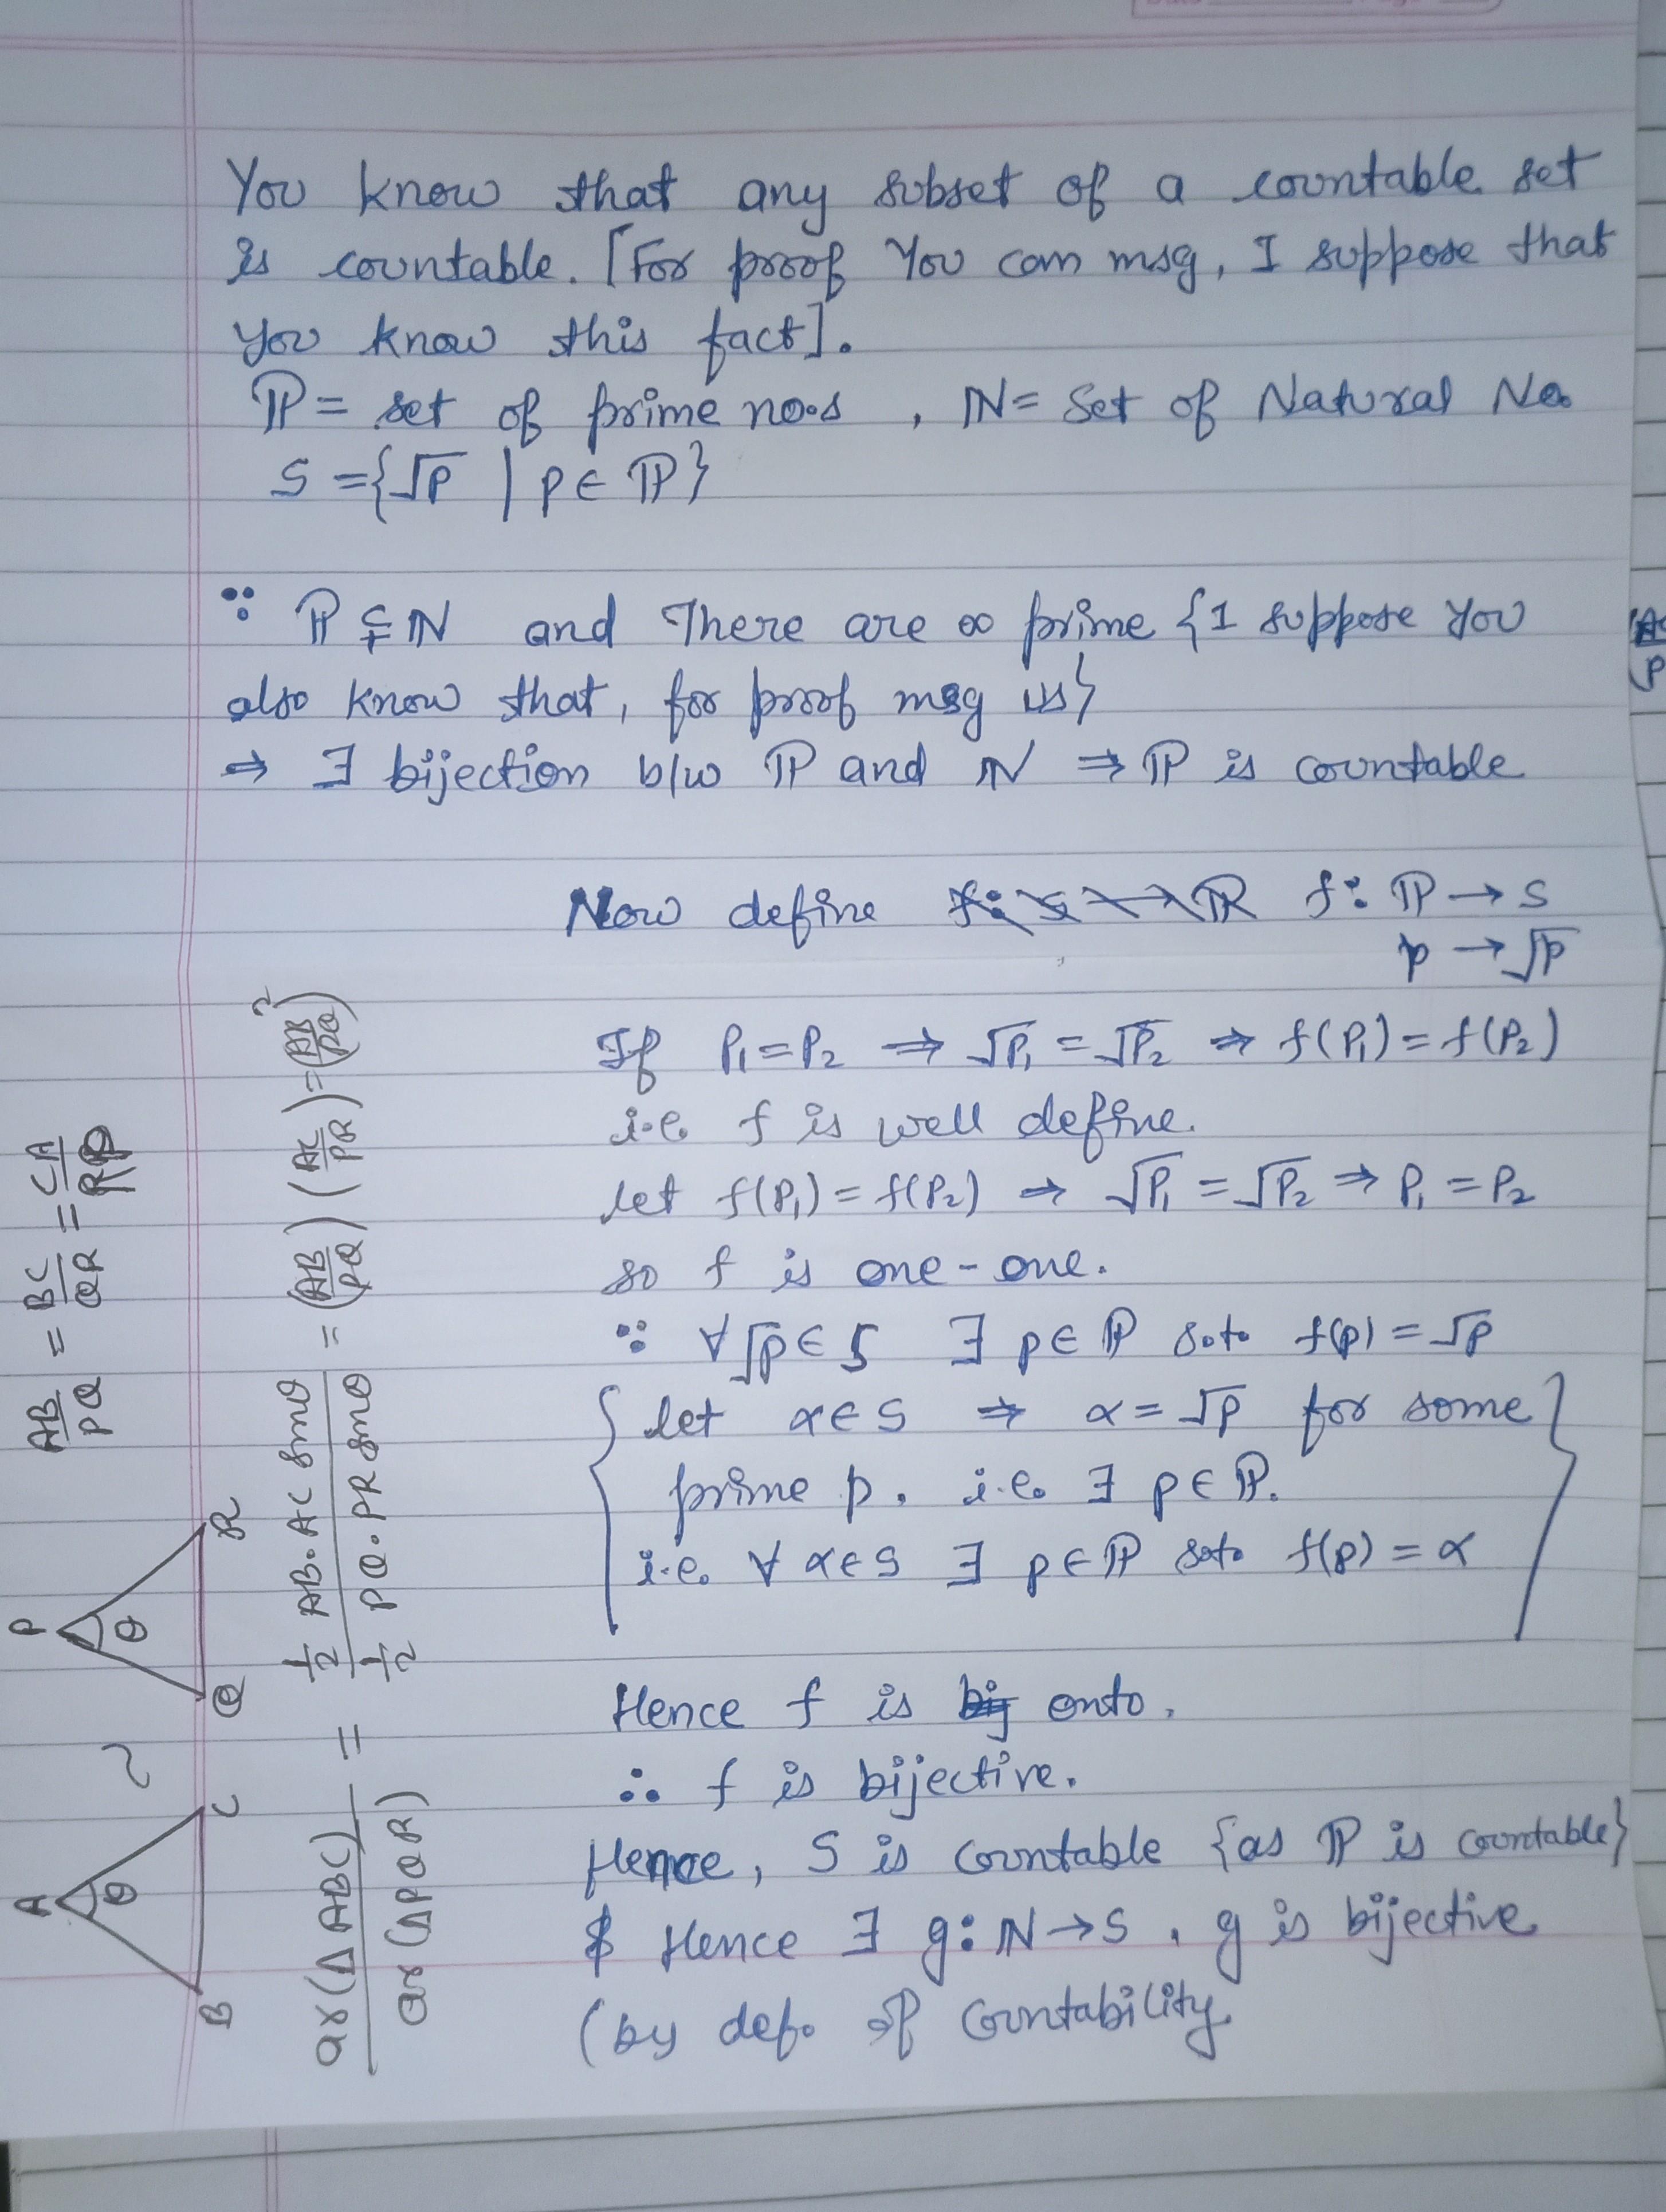 You know that any subset of a countable set
is countable. [For proof You can msg, I suppose that
you know this fact].
ℙ = set of prime no.s , ℕ = Set of Natural No.
S = {√p | p ∈ ℙ}
∵ ℙ ⊊ ℕ and There are ∞ prime {I suppose You
also know that, for proof msg us}
⇒ ∃ bijection b/w ℙ and ℕ ⇒ ℙ is countable
Now define f: ℙ → S
p → √p
If P₁ = P₂ ⇒ √P₁ = √P₂ ⇒ f(P₁) = f(P₂)
i.e. f is well define.
let f(P₁) = f(P₂) ⇒ √P₁ = √P₂ ⇒ P₁ = P₂
so f is one-one.
∵ ∀ √p ∈ S ∃ p ∈ ℙ s.t. f(p) = √p
{ let α ∈ S ⇒ α = √p for some
prime p. i.e. ∃ p ∈ ℙ.
i.e. ∀ α ∈ S ∃ p ∈ ℙ s.t. f(p) = α }
Hence f is onto.
∴ f is bijective.
Hence, S is countable {as ℙ is countable}
Hence ∃ g: ℕ → S, g is bijective
(by def. of Countability
A θ B C ~ P θ Q R
AB/PQ = BC/QR = CA/RP
ar(ΔABC)/ar(ΔPQR) = ½ AB·AC sinθ / ½ PQ·PR sinθ = (AB/PQ) (AC/PR) = (AB/PQ)²